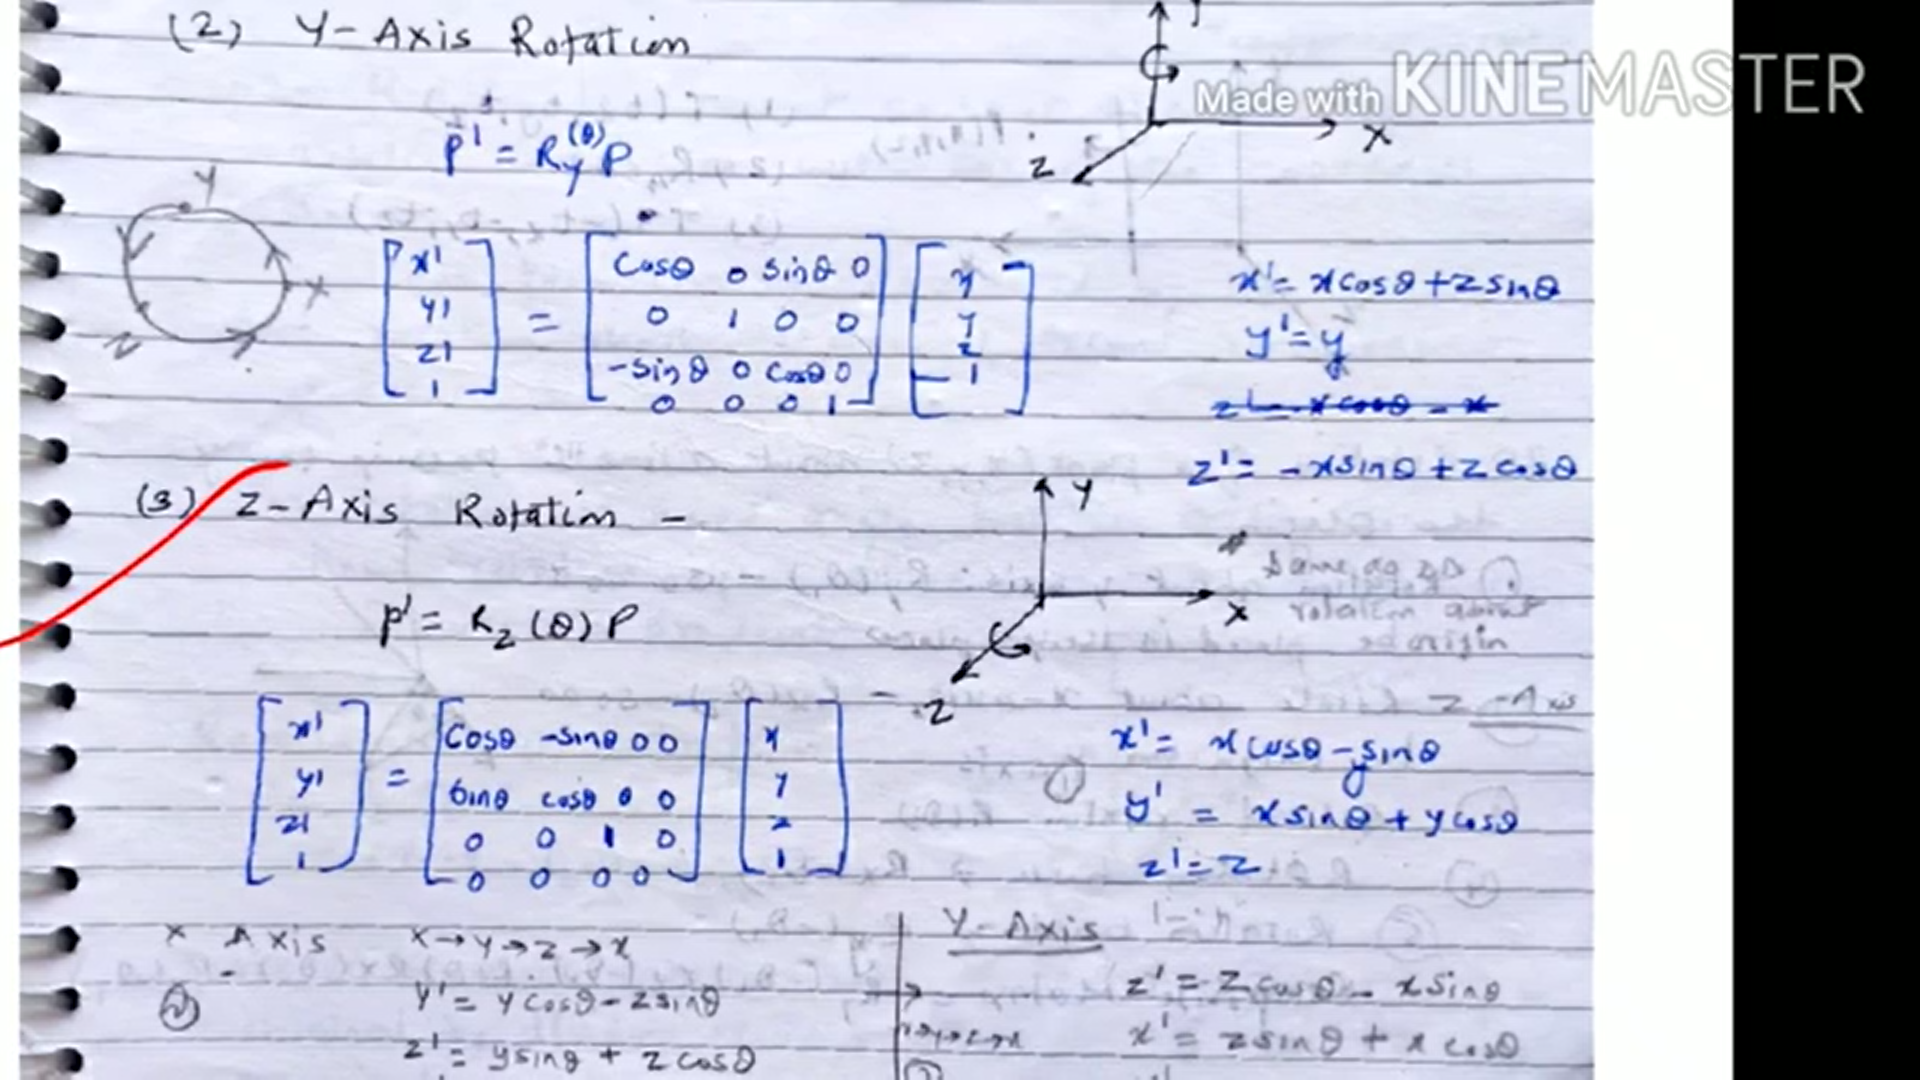 (2) Y-Axis Rotation
Y
Made with KINEMASTER
X
Z
P' = Ry(θ) P
Y
X
Z
[x' y' z' 1] = [Cosθ 0 sinθ 0
0 1 0 0
-sinθ 0 cosθ 0
0 0 0 1] [x y z 1]
x' = x cosθ + z sinθ
y' = y
z' = -x sinθ + z cosθ
(3) Z-Axis Rotation -
Y
X
Z
same as 2D
rotation about
origin
P' = Rz (θ) P
Z-Axis
[x' y' z' 1] = [Cosθ -sinθ 0 0
sinθ cosθ 0 0
0 0 1 0
0 0 0 0] [x y z 1]
①
x' = x cosθ - y sinθ
y' = x sinθ + y cosθ
z' = z
X Axis X→Y→Z→X
②
y' = y cosθ - z sinθ
z' = y sinθ + z cosθ
Y-Axis
z' = z cosθ - x sinθ
x' = z sinθ + x cosθ